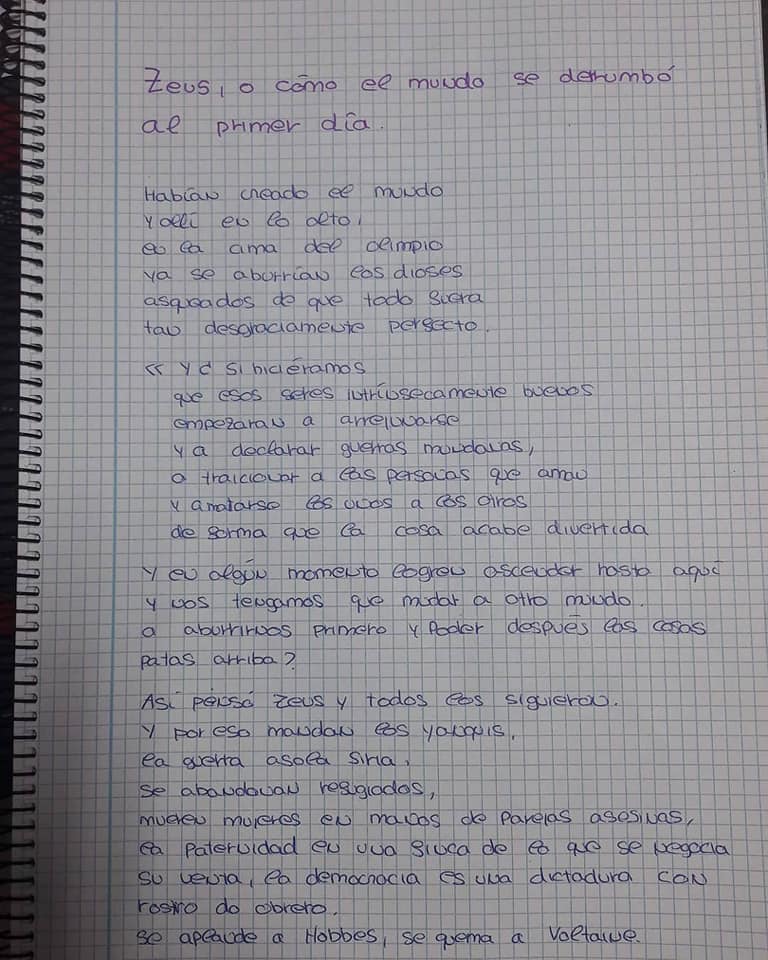 Zeus, o cómo el mundo se derrumbó
al primer día.
Habían creado el mundo
y allí en lo alto,
en la cima del olimpio
ya se aburrían los dioses
asqueados de que todo fuera
tan desgraciamente perfecto.
« Y ¿ si hiciéramos
que esos seres intrínsecamente buenos
empezaran a arreinarse
y a declarar guerras mundanas,
o traicionar a las personas que aman
y amatarse los unos a los otros
de forma que la cosa acabe divertida
Y en algún momento logren ascender hasta aquí
y nos tengamos que mudar a otro mundo.
a aburrirnos primero y poder después las cosas
patas arriba?
Así pensó Zeus y todos los siguieron.
Y por eso mandan los yanquis,
la guerra asola Siria,
se abandonan refugiados,
mueren mujeres en manos de parejas asesinas,
la paternidad en una finca de lo que se negocia
su venta, la democracia es una dictadura con
rostro de obrero.
se aplaude a Hobbes, se quema a Voltaire.